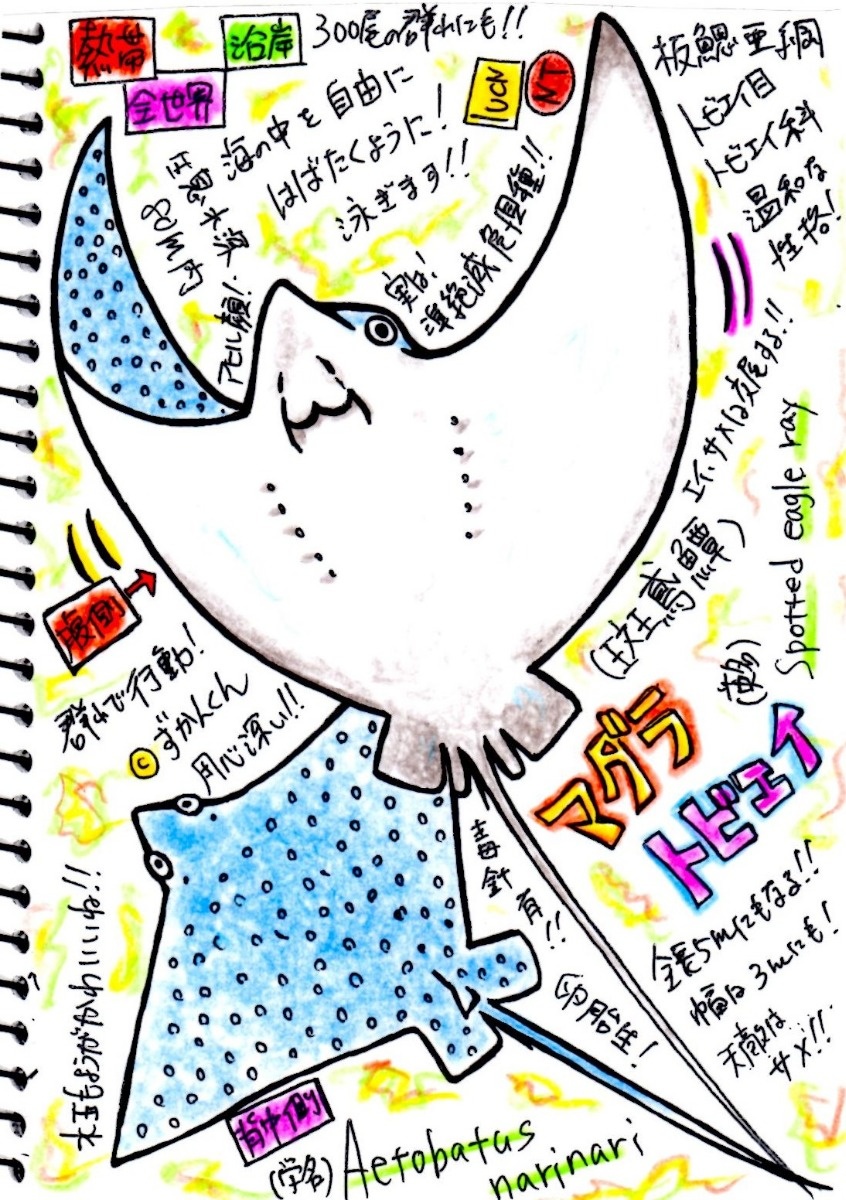 熱帯
沿岸
全世界
300尾の群れにも!!
IUCN
NT
板鰓亜綱
トビエイ目
トビエイ科
温和な
性格!
海の中を自由に
はばたくように!
泳ぎます!!
水深
80m内
アヒル顔!
実は!
準絶滅危惧種!!
エイ、サメは交尾する!!
腹側
群れで行動!
©ずかんくん
用心深い!!
(斑鳶鱝)
(英名)
Spotted eagle ray
マダラ
トビエイ
毒針有!!
卵胎生!
全長5mにもなる!!
幅は3mにも!
天敵は
サメ!!
水玉もようがかわいいね!!
背中側
(学名)
Aetobatus
narinari